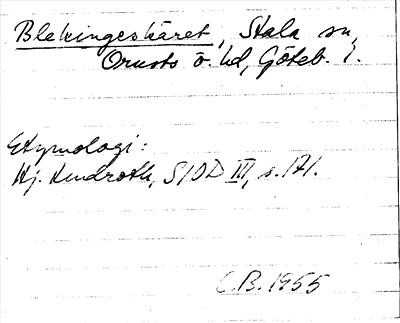 Blekingeskäret, Stala sn,
Orusts ö. hd, Göteb. l.
Etymologi:
Hj. Lindroth, SIOD III, s. 171.
C.B. 1955